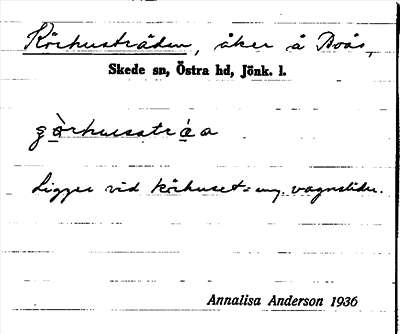 Körhusträden, åker å Boås,
Skede sn, Östra hd, Jönk. l.
görhusstráa
Ligger vid körhuset = vagnslider.
Annalisa Anderson 1936